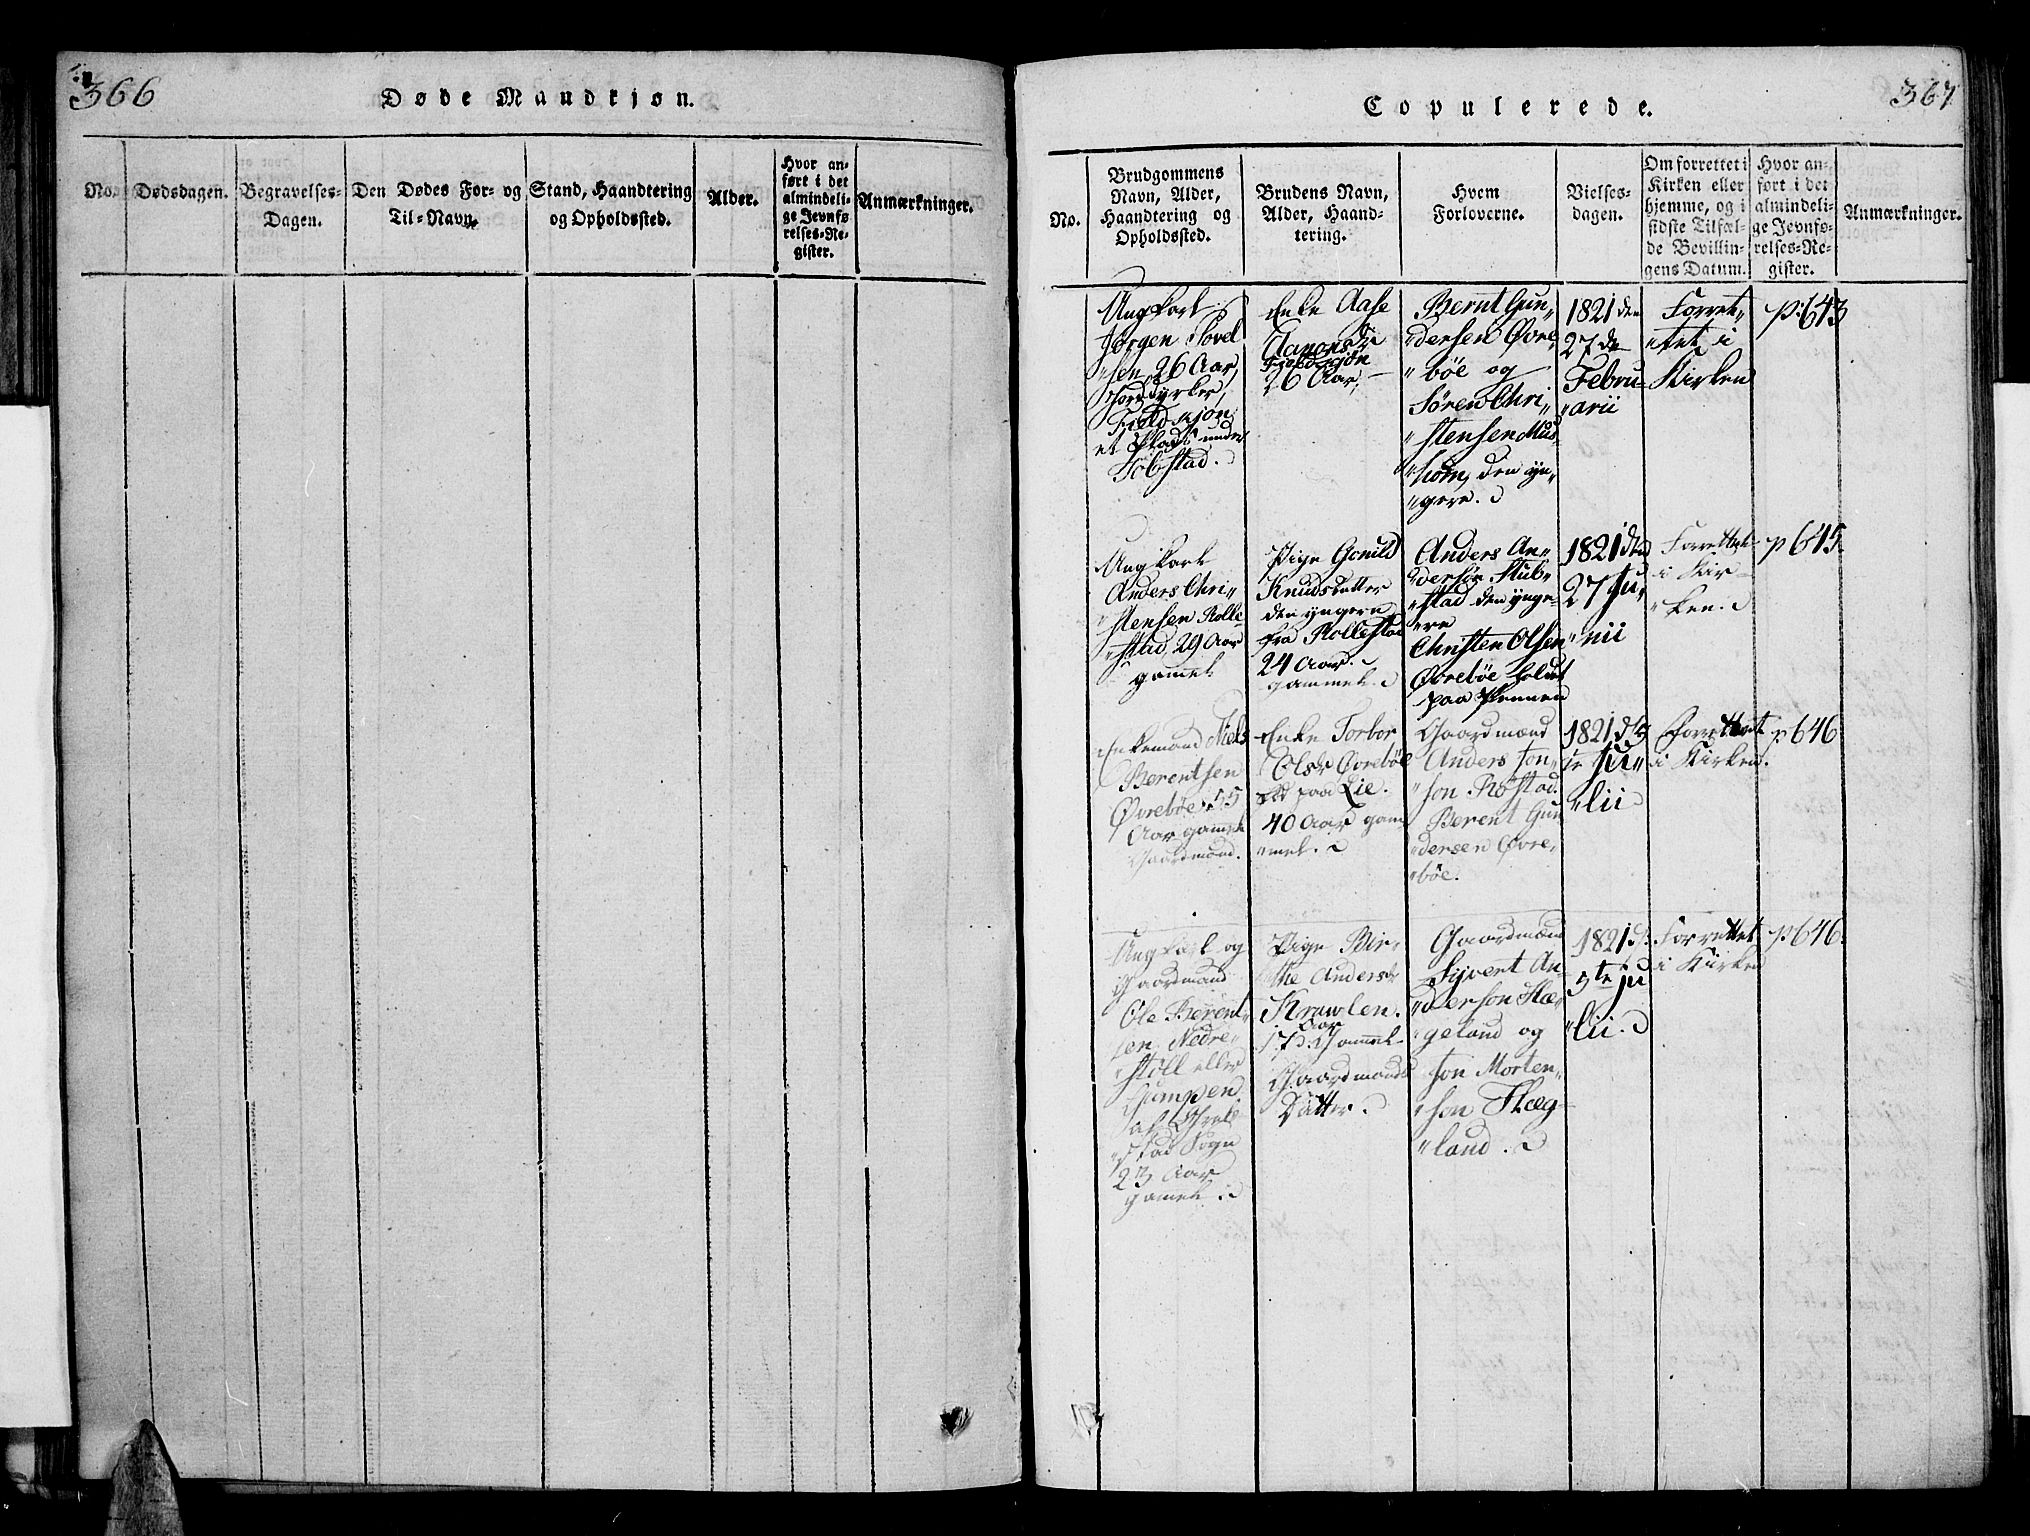 366
Døde Mandkjøn.
No.
Dødsdagen.
Begravelses-
Dagen.
Den Dødes For- og
Til-Navn.
Stand, Haandtering
og Opholdssted.
Alder.
Hvor an-
ført i det
almindeli-
ge Jevnfø
relses-Re-
gister.
Anmærkninger.
Copulerede.
367
No.
Brudgommens
Navn, Alder,
Haandtering og
Opholdssted.
Brudens Navn,
Alder, Haand-
tering.
Hvem
Forloverne.
Vielses-
dagen.
Om forrettet i
Kirken eller
hjemme, og i
sidste Tilfæl-
de Bevillin-
gens Datum.
Hvor an-
ført i det
almindeli-
ge Jevnfø-
relses-Re-
gister.
Anmærkninger.
Ungkarl
Jørgen Tovel
"sen, 26 Aar,
Jorddyrker,
et Plads under
Enke Aase
26 Aar,
Bernt Gun"
"dersen Øvre"
"bøe og
Søren Chri"
"stensen Mus"
"hom, den yn"
"gere.
1821 den
27de
Febru"
"arii
Forret"
"tet i
Kirken
p. 643
Ungkarl
Anders Chri"
"stensen Rolle"
"stad, 29 Aar
gamel
Pige Gonild
Knudsdatter
den yngere
fra Rollestad
24 Aar
gammel.
Anders An"
"dersøn Stub"
"stad den ynge"
"re
Christen Olsen
Øvrebøe
1821 den
27 Ju"
"nii
Forrettet
i Kir"
"ken.
p 645.
Enkemand Niels
Berentsen
Øvrebøe, 55
Aar gammel
Gaardmand.
Enke Torbor
Olsr Øvrebøe
paa Lie.
40 Aar gam"
"mel.
Gaardmænd
Anders Jon"
"son Røstad.
Berent Gun
"dersen Øvre"
"bøe.
1821 d. 5
te Ju"
"lii
Forrettet
i Kirken.
p 646
Ungkarl og
Gaardmand
Ole Berent"
sen Nedre"
"støll eller
af Græ
"stad Sogn
23 Aar
gamel.
Pige Bir"
"the Andersdr
17 Aar Gammel
Gaardmands
Datter.
Gaardmænd
Syvert An"
"derson Hæ"
"geland og
Jon Morten"
"son Hæg"
"land.
1821 d.
5te Ju
"lii.
Forrettet
i Kirken
p 646.